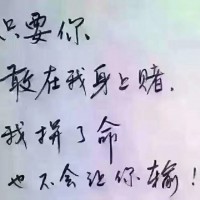 只要你
敢在我身上赌.
我拼了命
也不会让你输！